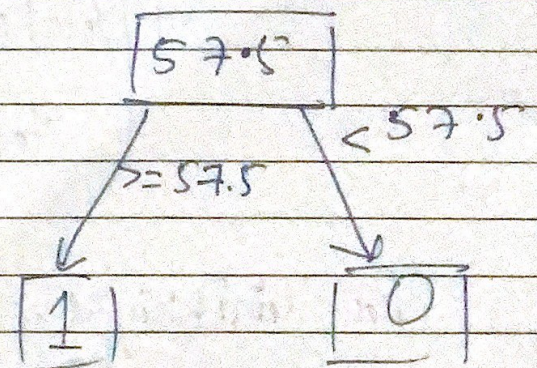 57.5
< 57.5
>= 57.5
1
0